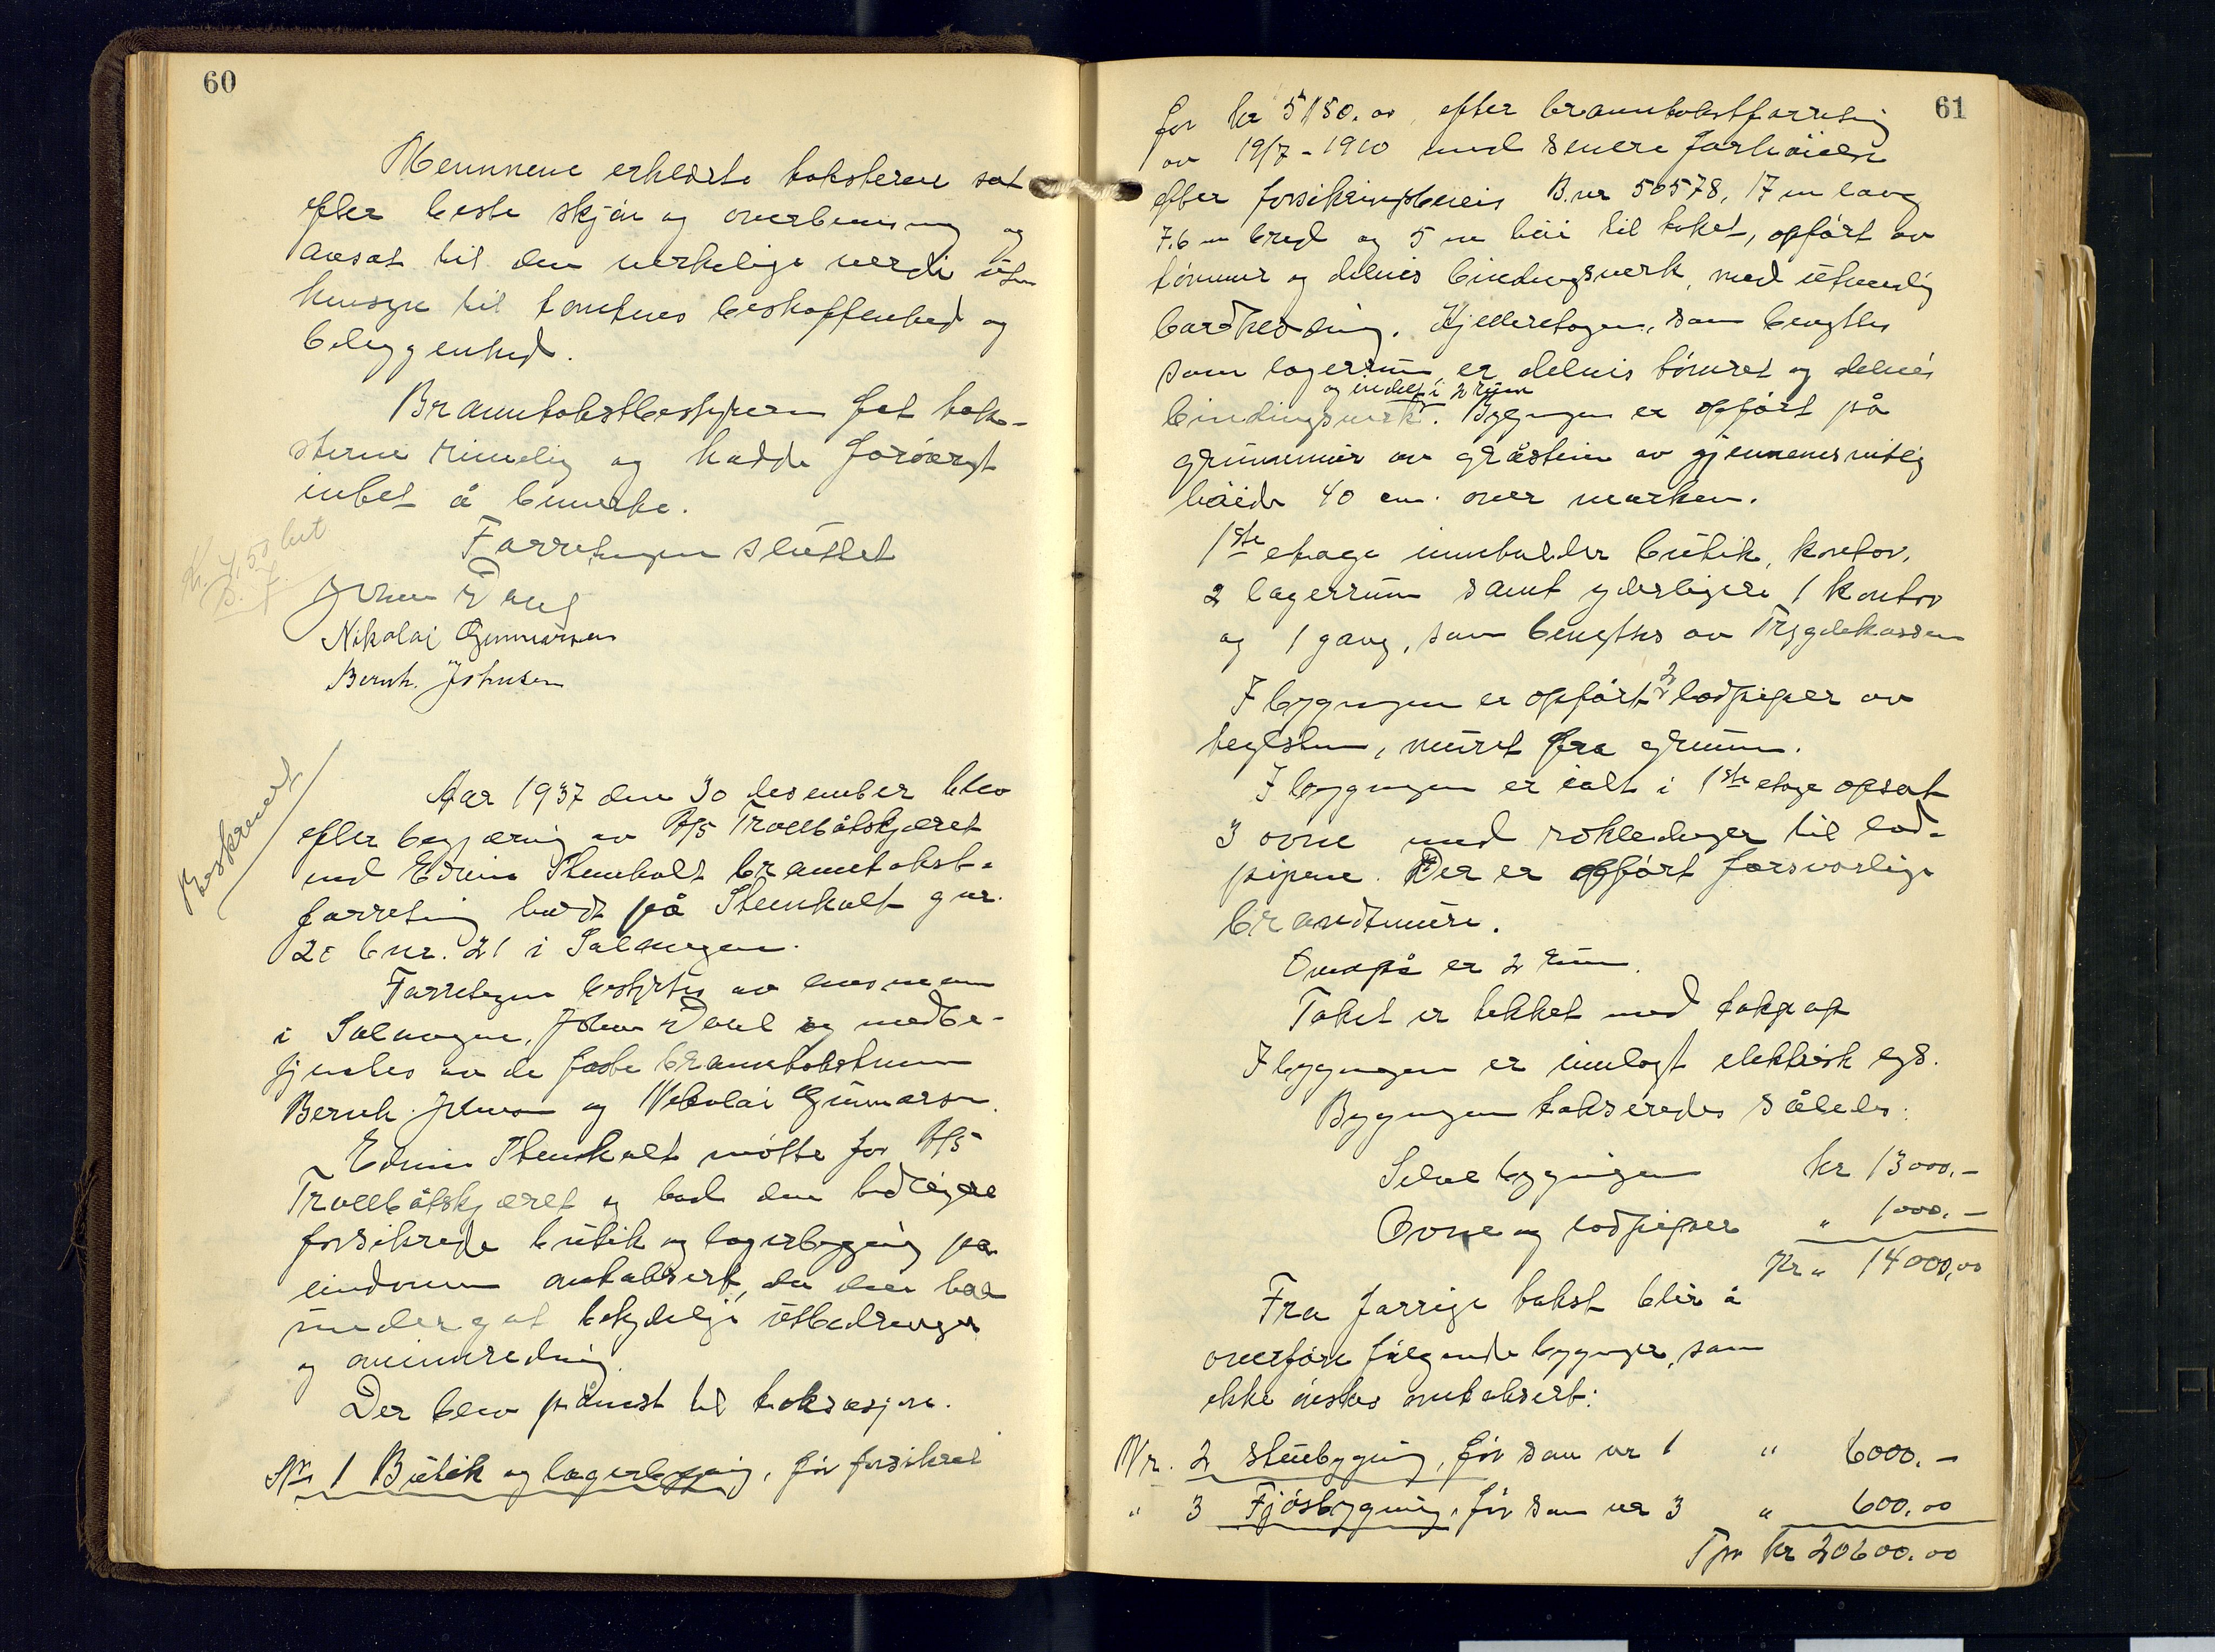 60
Mennene erklærte taksterne sat
efter beste skjøn og overbevisning og
ansat til den virkelige verdi uten
hensyn til tomtenes beskaffenhed og
beliggenhed.
Branntakstbestyreren fat tak-
sterne rimelig og hadde forøvrigt
intet å bemerke.
Forretningen sluttet
Kr. 4,50 bet
Johan Dahl
Nikolai Gunnarsen
Bernh. Johnsen
Beskrevet
Aar 1937 den 30 desember blev
efter begjæring av A/S Trollbåtskjæret
ved Edvin Stenkolt branntakst-
forretning holdt på Stenkolt gnr.
20 bnr. 21 i Salangen.
Forretningen bestyrtes av lensmann
i Salangen, Johan Dahl og medbe-
tjentes av de faste branntakstmenn
Bernh. Johnsen og Nikolai Gunnarsen.
Edvin Stenkolt møtte for A/S
Trollbåtskjæret og bad den tidligere
forsikrede butik og lagerbygning på
eindommen omtaksert, da den har
undergåt betydelige utbedringer
og ominnredning.
Der blev påvist til taksasjon.
Nr. 1 Butik og lagerbygning, før forsikret
61
for kr 5150.00 efter branntakstforretning
av 19/7 - 1910 med senere forhøielse
efter forsikringsbevis B.nr 50578, 17 m lang
7.6 m bred og 5 m høi til taket, opført av
tømmer og delvis bindingsverk, med utvendig
bordkledning. Kjelleretagen, som benyttes
som lagerrum er delvis tømret og delvis
og indelt i 2 rum
bindingsverk. Bygningen er opført på
grunnmur av gråstein av gjennemsnitlig
høide 40 cm. over marken.
1ste etage inneholder butik, kontor,
2 lagerrum samt yderligere 1 kontor
og 1 gang, som benyttes av Trygdekassen
I bygningen er opført 2 lodpiper av
teglsten, muret fra grunn.
I bygningen er ialt i 1ste etage opsat
3 ovne med rørledninger til lod-
pipene. Der er opført forsvarlige
brandmure.
Ovenpå er 2 rum.
Taket er tekket med takpap
I bygningen er innlagt elektrisk lys.
Bygningen takseredes således:
Selve bygningen kr 13000.-
Ovne og lodpiper " 1000.-
Kr " 14000,00
Fra forrige takst blir å
overføre følgende bygninger, som
ikke ønskes omtaksert:
Nr. 2 Stuebygning, før som nr 1 " 6000.-
" 3 Fjøsbygning, før som nr 3 " 600.00
Tpr kr 20600.00